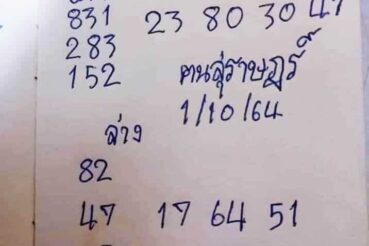 831 23 80 30 47
283
152 คนสุราษฎร์
1/10/64
ล่าง
82
47 17 64 51